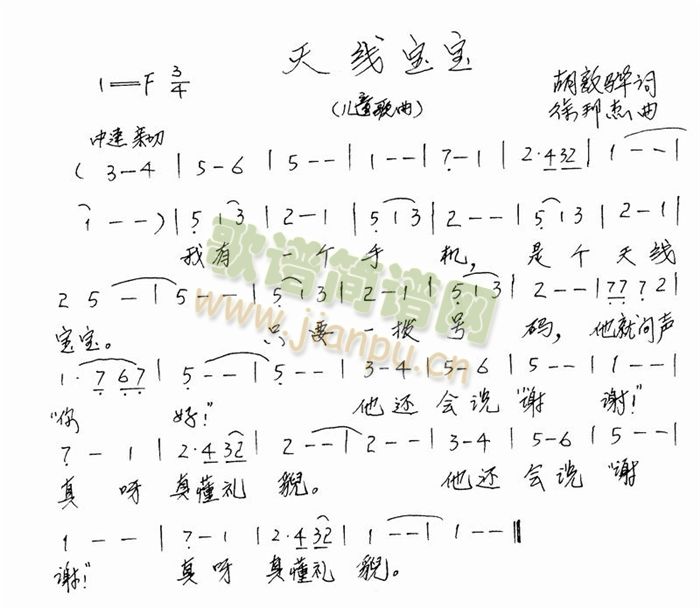 天线宝宝
1=F 3/4
(儿童歌曲)
胡敦骅词
徐邦杰曲
中速 亲切
( 3-4 | 5-6 | 5-- | 1-- | 7-1 | 2·432 | 1-- |
1-- ) | 5 13 | 2-1 | 5 13 | 2-- | 5 13 | 2-1 |
我有 一个 手 机, 是个 天线
2 5 - | 5-- | 5 13 | 2-1 | 5 13 | 2-- | 77 72 |
宝宝。 只要 一拨 号 码, 他就问声
1·767 | 5-- | 5-- | 3-4 | 5-6 | 5-- | 1-- |
"你 好!" 他还 会说 "谢 谢!"
7-1 | 2·432 | 2-- | 2-- | 3-4 | 5-6 | 5-- |
真呀 真懂礼 貌。 他还 会说 "谢
1-- | 7-1 | 2·432 | 1-- | 1-- ‖
谢!" 真呀 真懂礼 貌。
歌谱简谱网
www.jianpu.cn